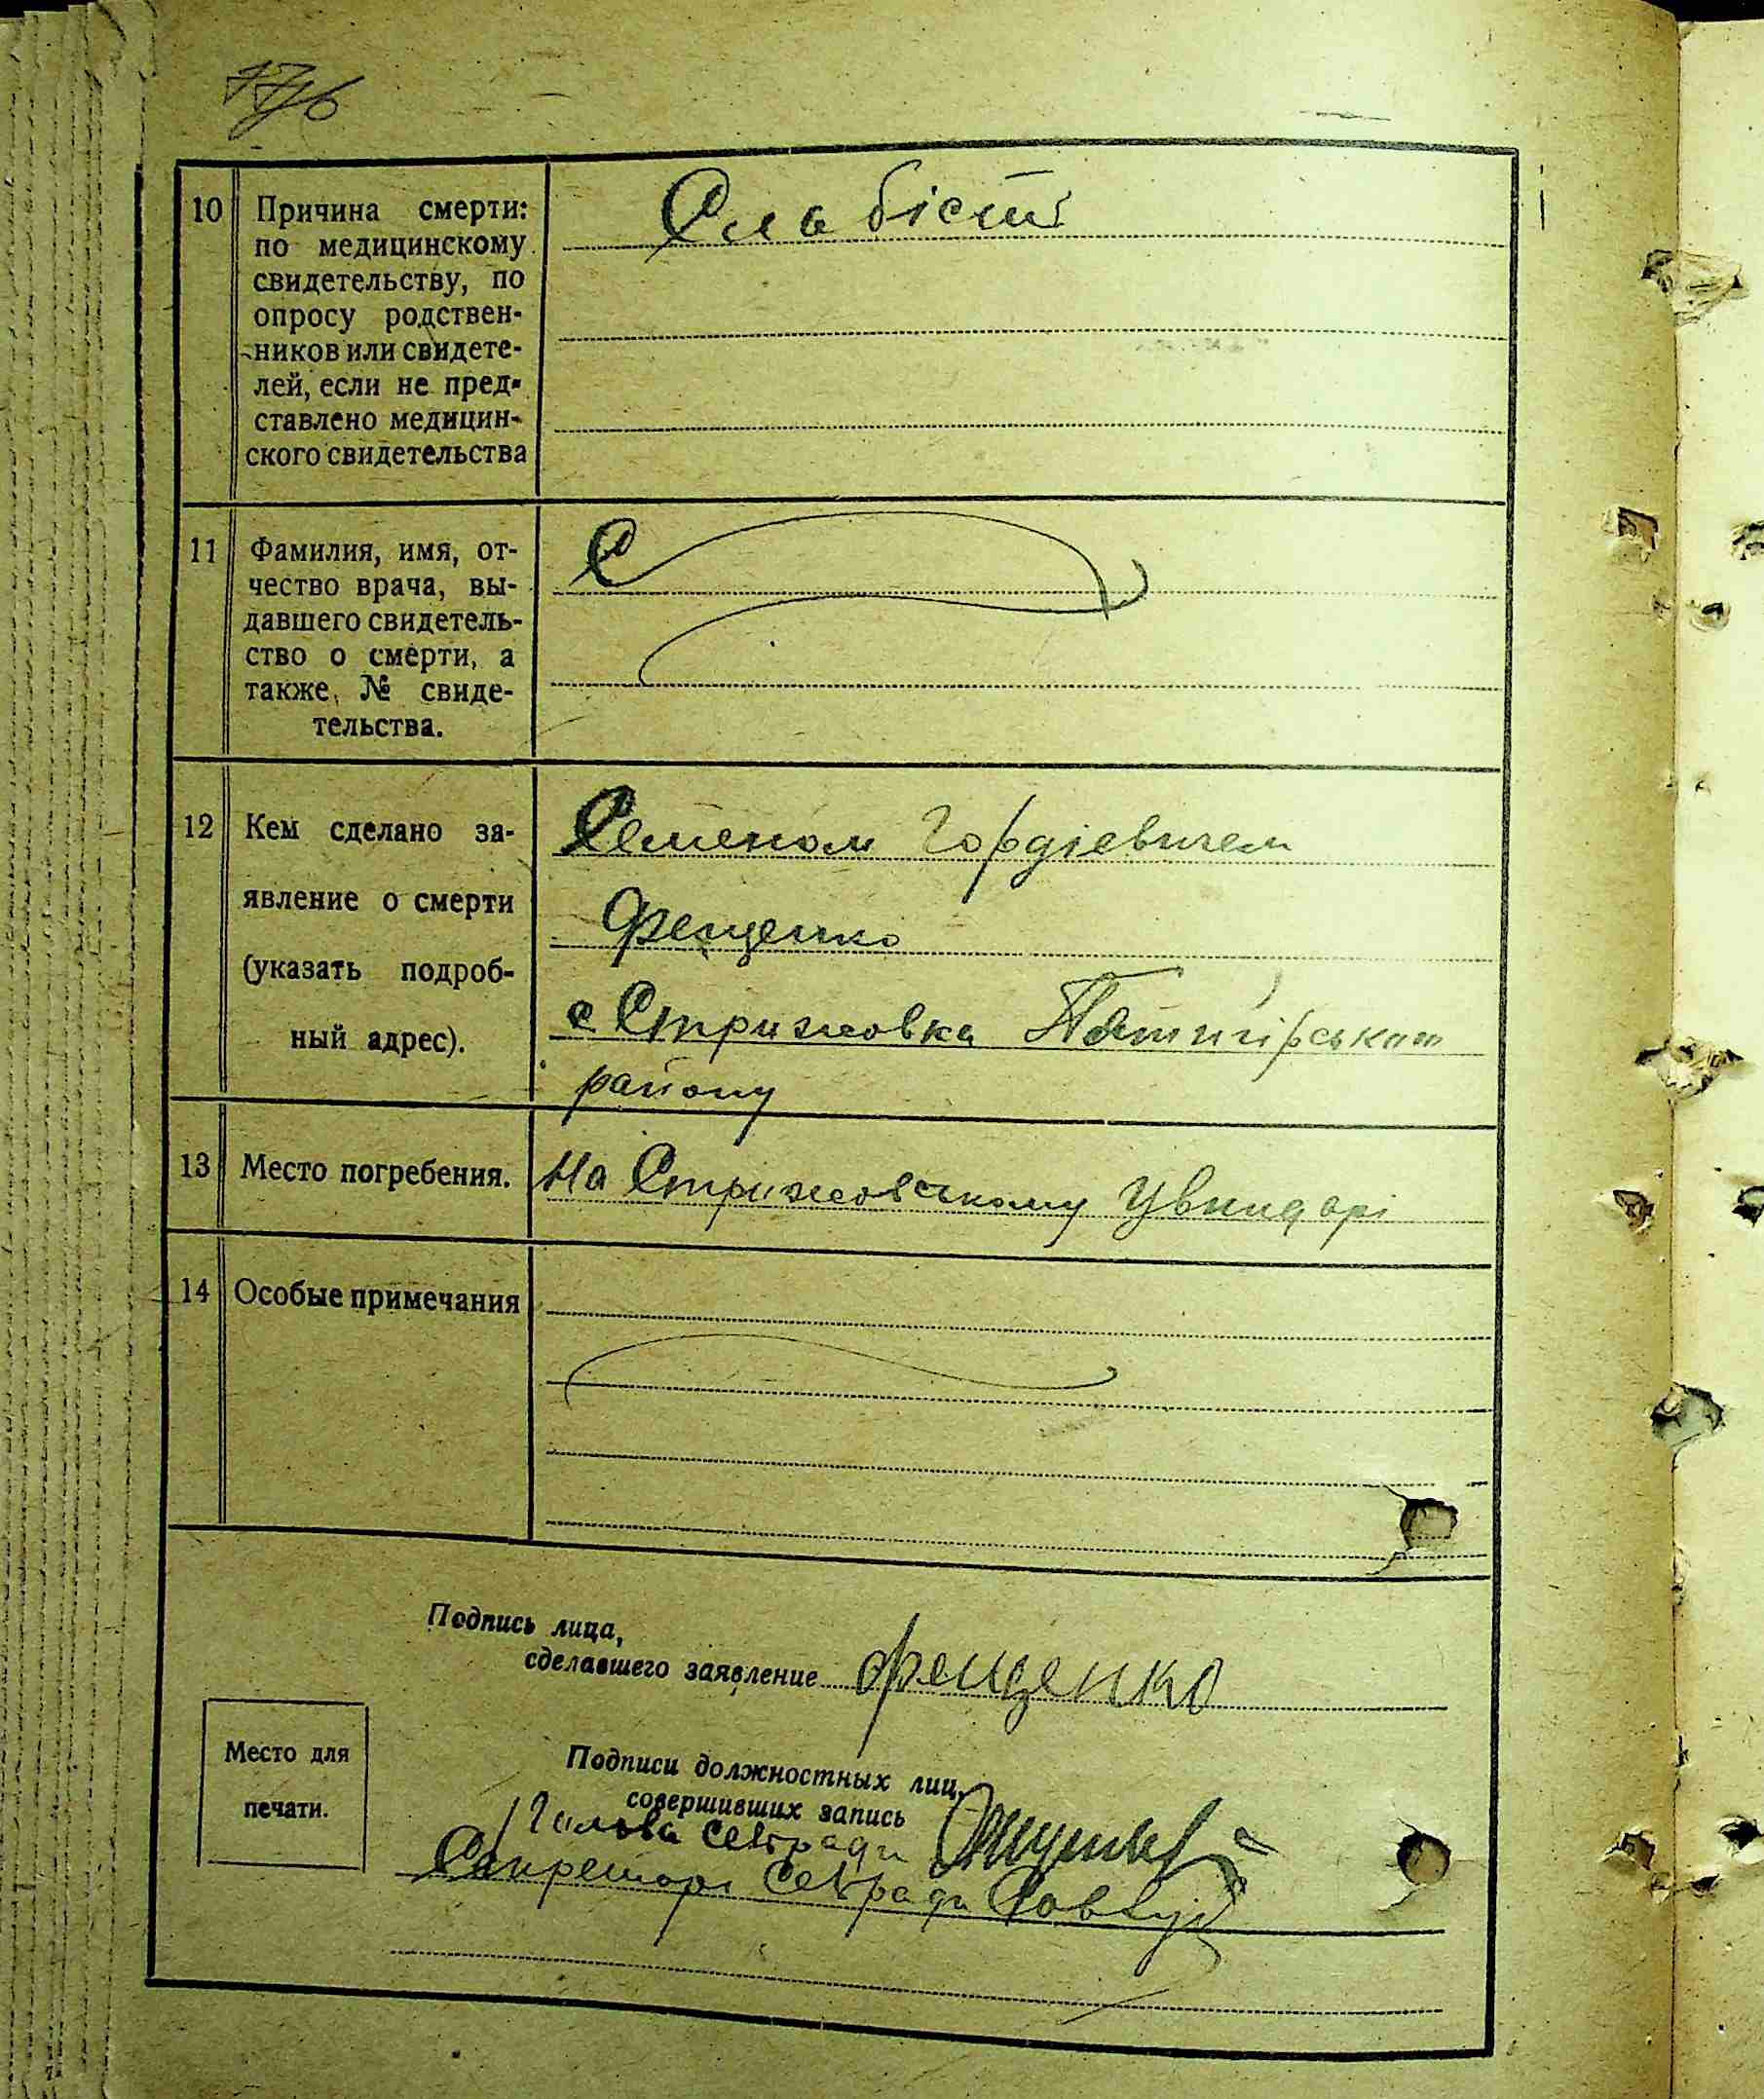 10 Причина смерти: Слабість
по медицинскому
свидетельству, по
опросу родствен-
ников или свидете-
лей, если не пред-
ставлено медицин-
ского свидетельства
11 Фамилия, имя, от-
чество врача, вы-
давшего свидетель-
ство о смерти, а
также № свиде-
тельства.
12 Кем сделано за- Семеном Гордієвичем
явление о смерти Фещенко
(указать подроб- с Стрижовка
ный адрес). району
13 Место погребения. На Стрижовському Цвиндарі
14 Особые примечания
Подпись лица,
сделавшего заявление Фещенко
Место для
печати.
Подписи должностных лиц,
совершивших запись
Голова сельради
Секретарь сельради